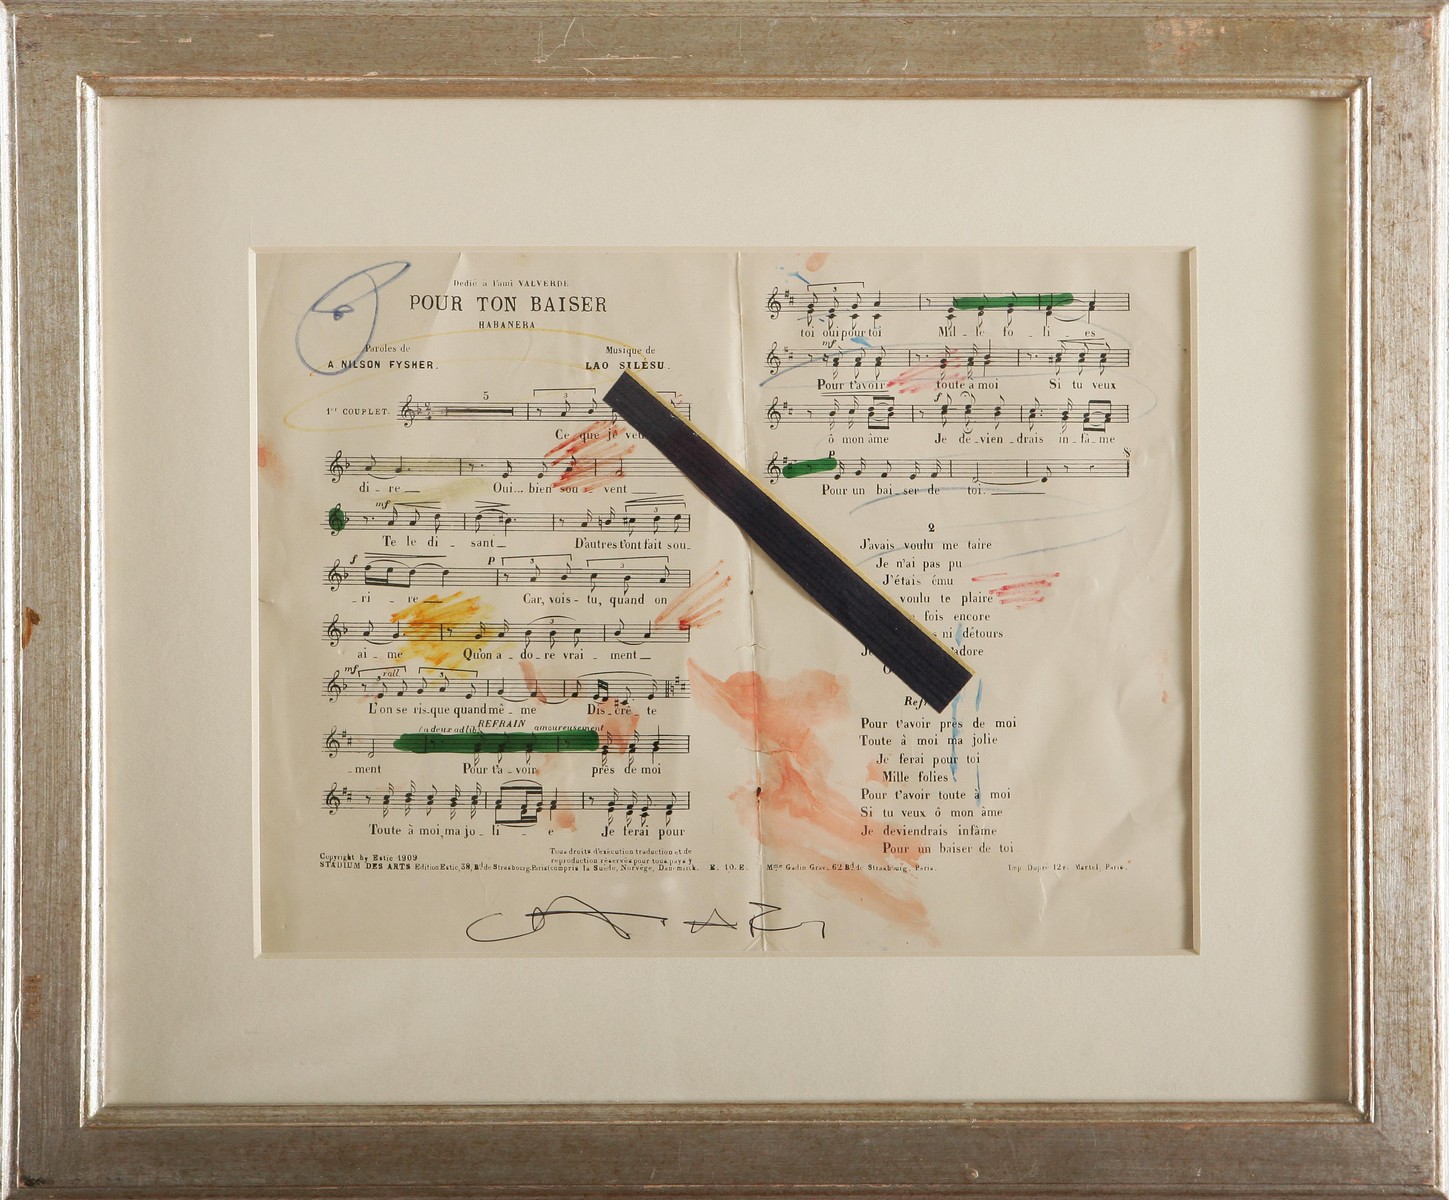 Dedié a l'ami VALVERDE
POUR TON BAISER
HABANERA
Paroles de
A NILSON FYSHER.
Musique de
LAO SILÉSU.
1er COUPLET.
5
3
3
Ce que je veu
di _ re
Oui... bien sou _ vent
mf
3
Te le di _ sant_ D'autres t'ont fait sou_
f
p
3
3
_ ri _ re Car, vois_tu, quand on
3
ai _ me Qu'on a _ do _ re vrai _ ment_
mf
rall
3
3
L'on se ris_que quand mê _ me Dis_crè _ te
REFRAIN
(a deux ad lib.
amoureusement
_ment Pour t'a _ voir près de moi
Toute à moi, ma jo _ li _ e Je ferai pour
Copyright by Estic 1909
Tous droits d'exécution traduction et de
reproduction réservés pour tous pays y
STADIUM DES ARTS Edition Estic, 38, Bd de Strasbourg. Paris compris la Suède, Norvège, Danemark. E. 10. E.
3
toi oui pour toi Mil _ le fo _ li _ es
mf
Pour t'avoir toute à moi Si tu veux
f
ô mon âme Je de_vien_drais in_fâ_me
p
8
Pour un bai_ser de toi.
2
J'avais voulu me taire
Je n'ai pas pu
J'étais ému
voulu te plaire
fois encore
ni détours
adore
Ref
Pour t'avoir près de moi
Toute à moi ma jolie
Je ferai pour toi
Mille folies
Pour t'avoir toute à moi
Si tu veux ô mon âme
Je deviendrais infâme
Pour un baiser de toi
Mme Gadin Grav. 62 Bd de Strasbourg. Paris.
Imp. Dupré 12 r. Martel, Paris.